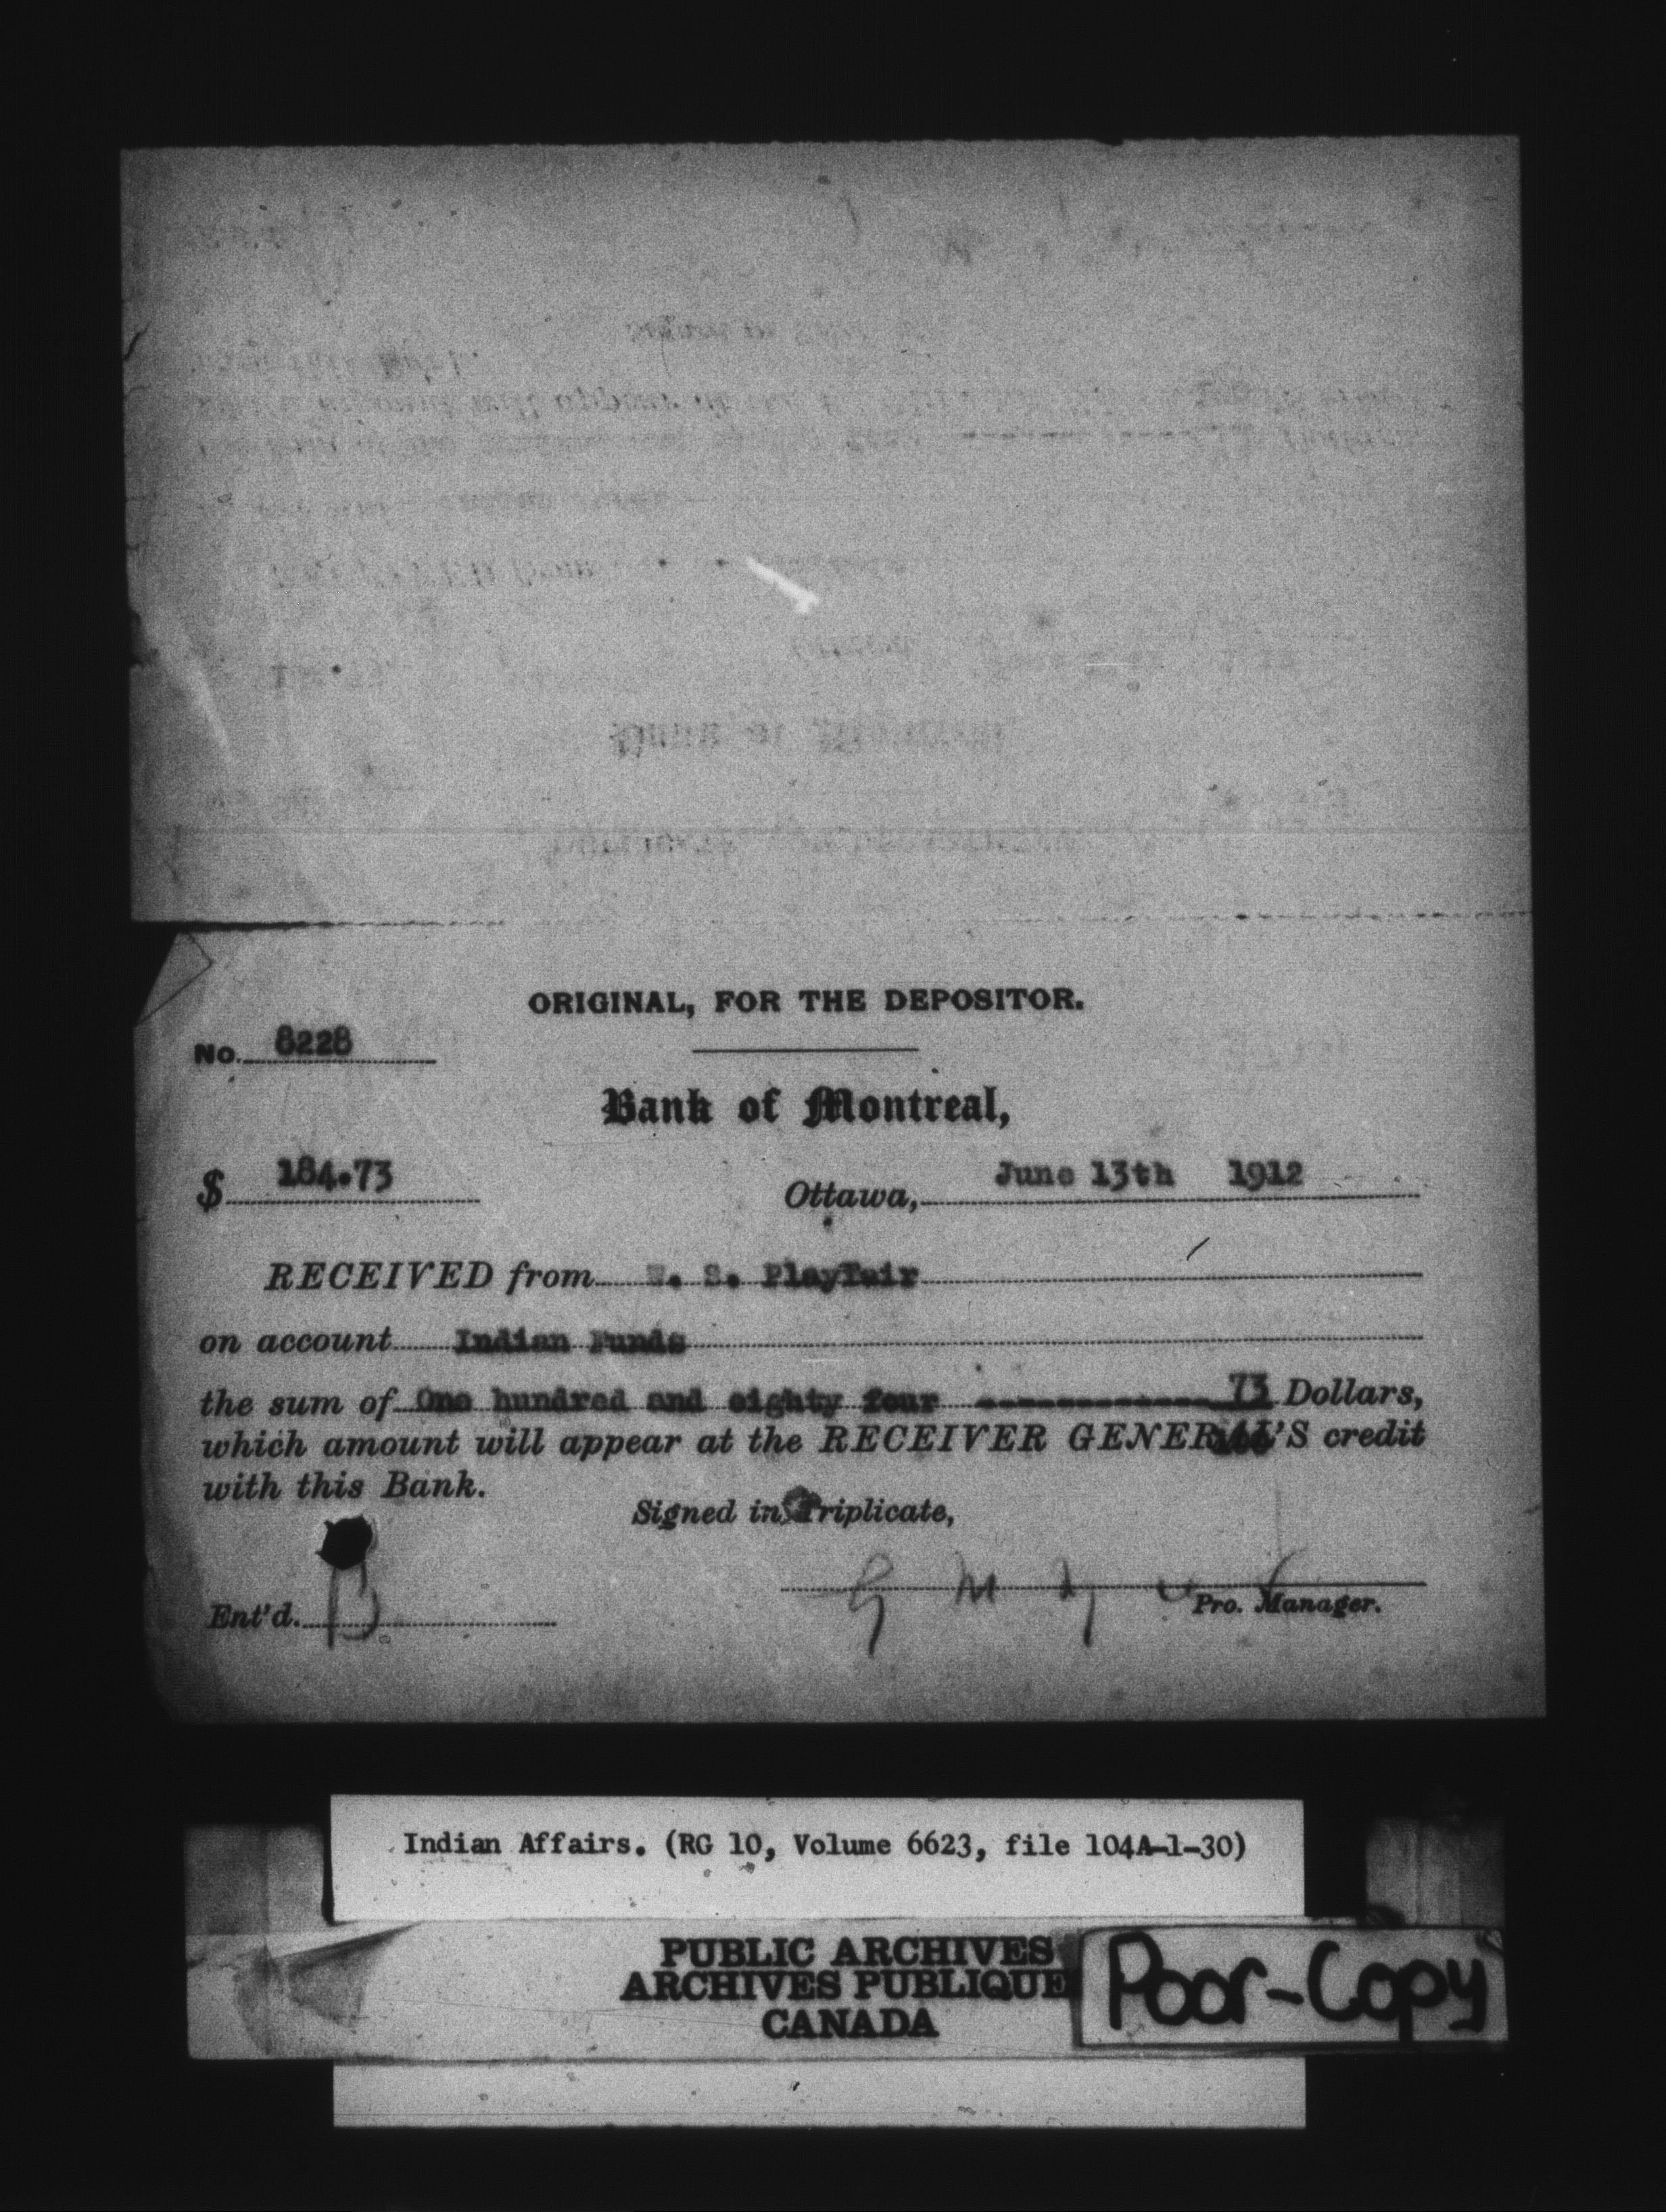 ORIGINAL, FOR THE DEPOSITOR.
No. 8228
Bank of Montreal,
$ 184.73 Ottawa, June 13th 1912
RECEIVED from S. Playfair
on account Indian Funds
the sum of One hundred and eighty four ------------ 73 Dollars,
which amount will appear at the RECEIVER GENERAL'S credit
with this Bank.
Signed in Triplicate,
Pro. Manager.
Ent'd.
Indian Affairs. (RG 10, Volume 6623, file 104A-1-30)
PUBLIC ARCHIVES
ARCHIVES PUBLIQUE
CANADA
Poor-Copy